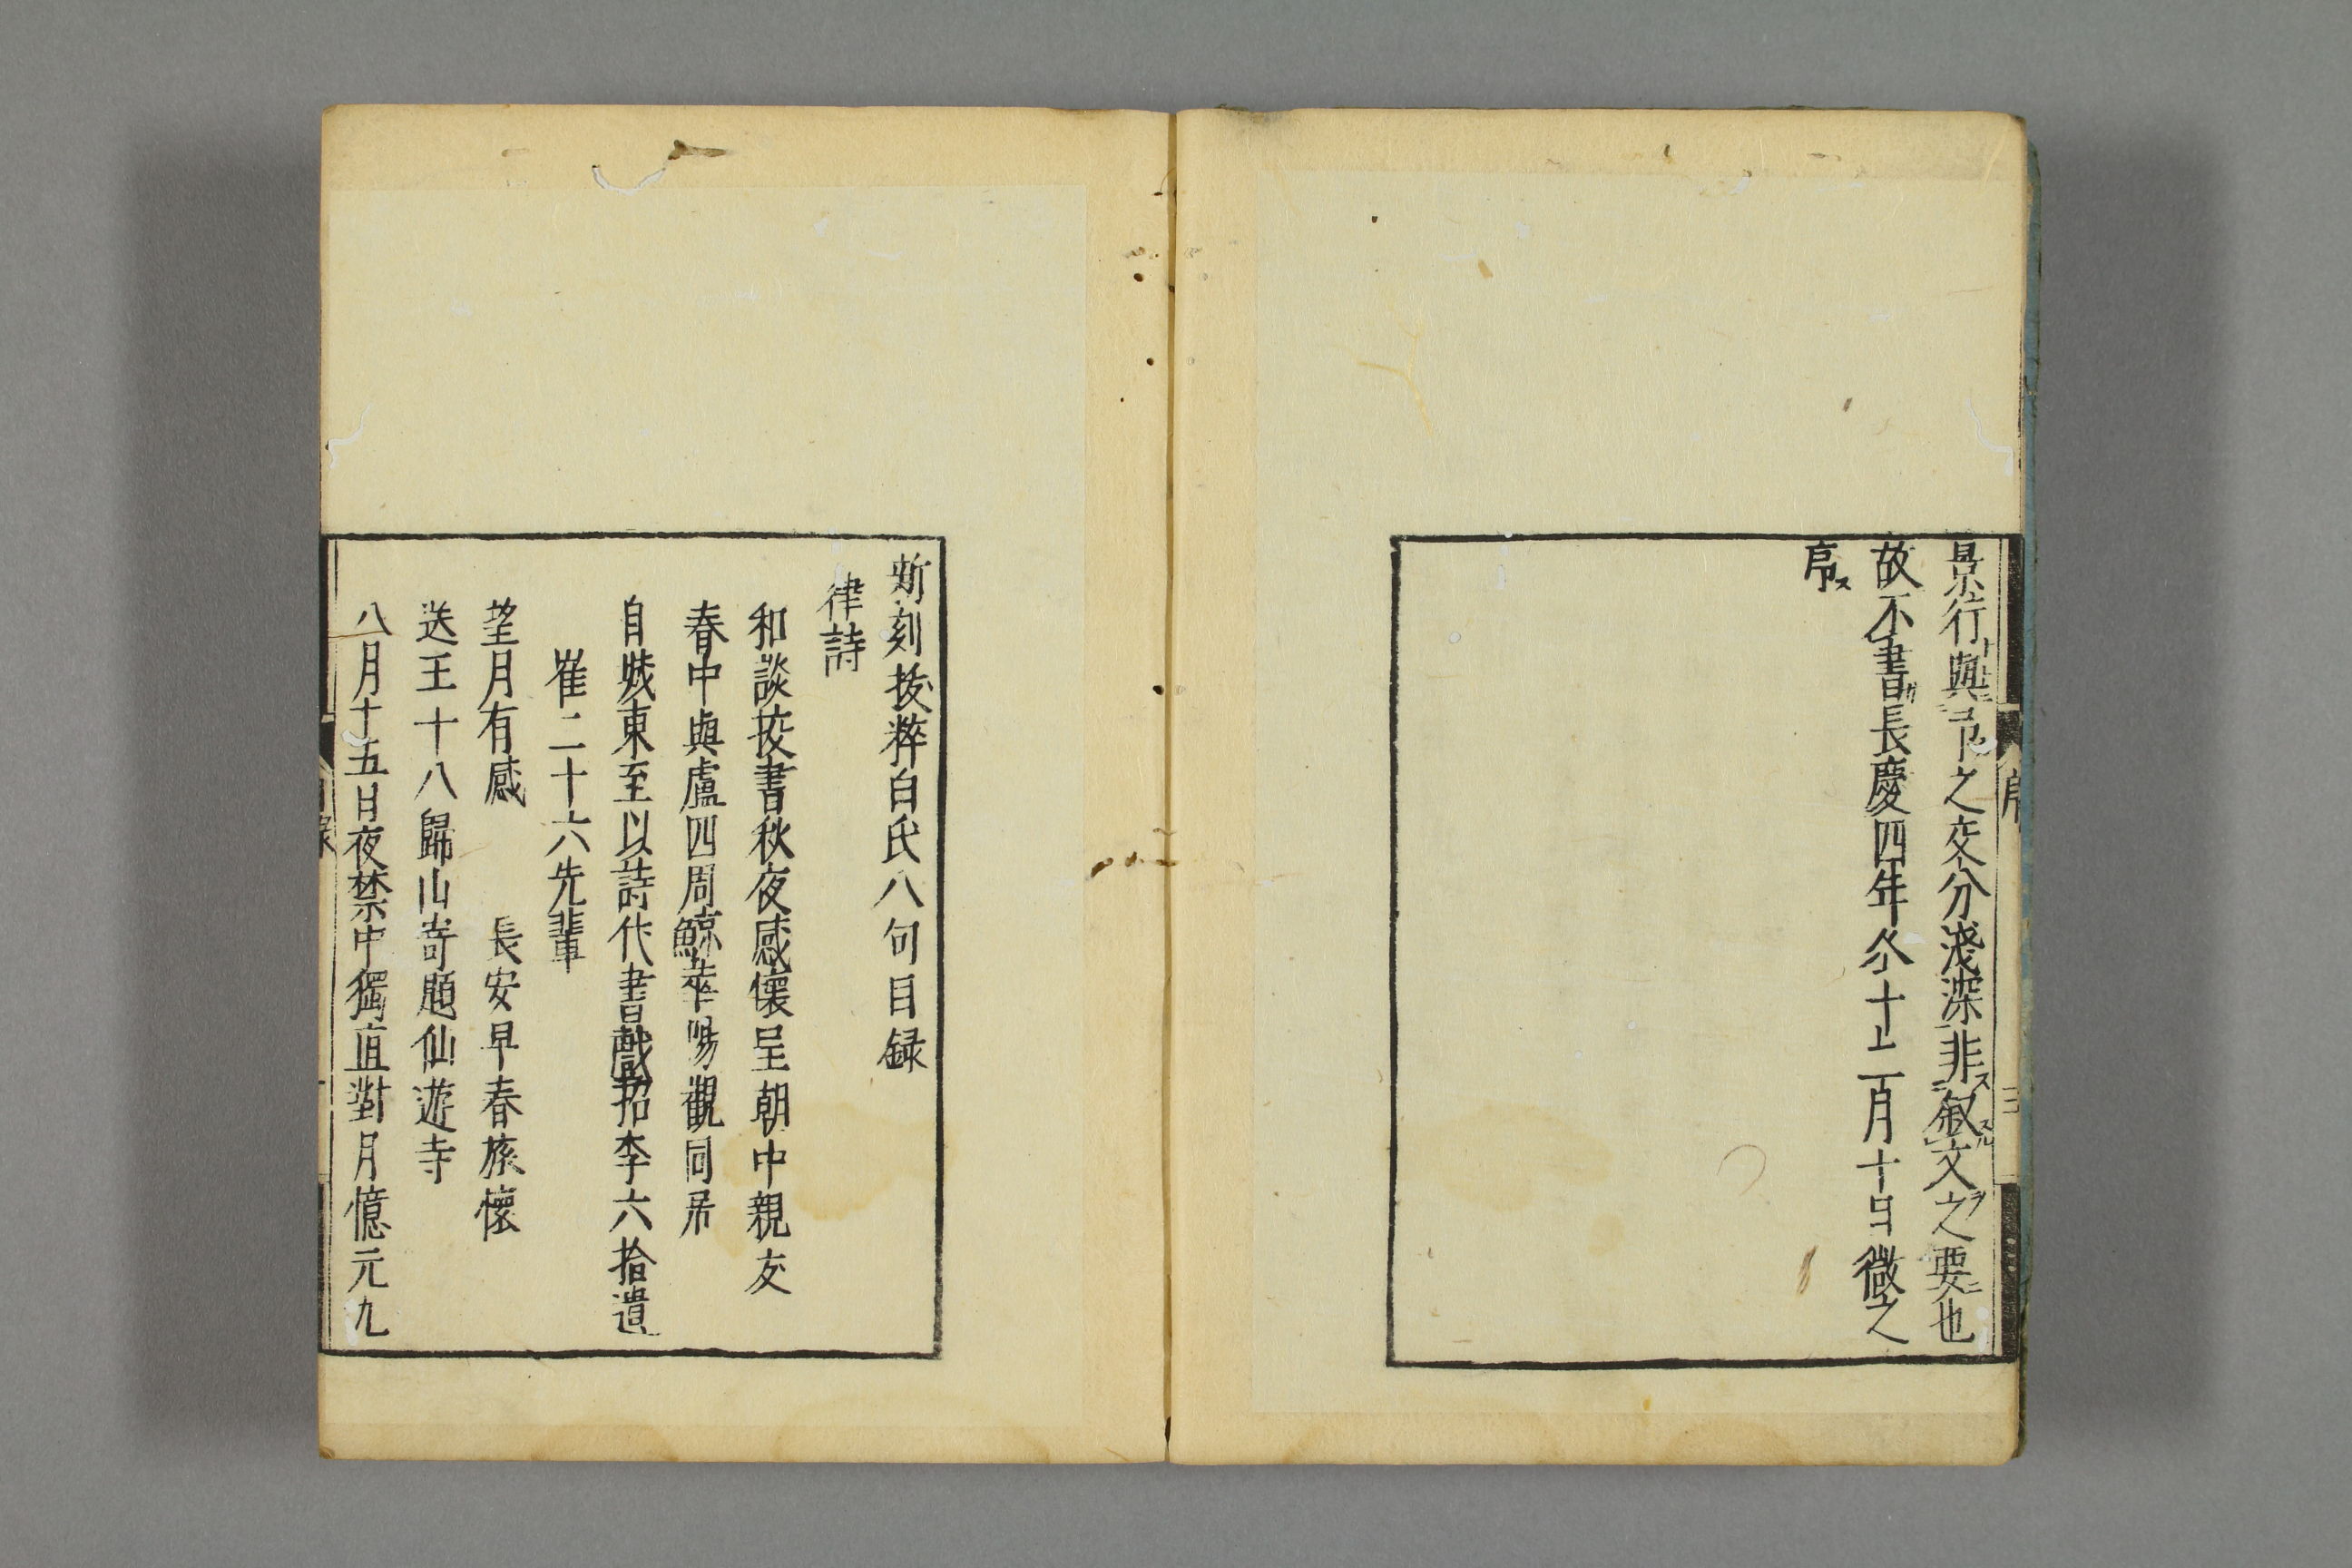 景行與予之交分淺深非叙文之要也
故不書長慶四年冬十二月十日微之
序
序
三
新刻抜粹白氏八句目録
律詩
和談挍書秋夜感懐呈朝中親友
春中與盧四周鯨華陽觀同居
自城東至以詩代書戯招李六拾遺
崔二十六先輩
望月有感　　長安早春旅懷
送王十八歸山寄題仙遊寺
八月十五日夜禁中獨直對月憶元九